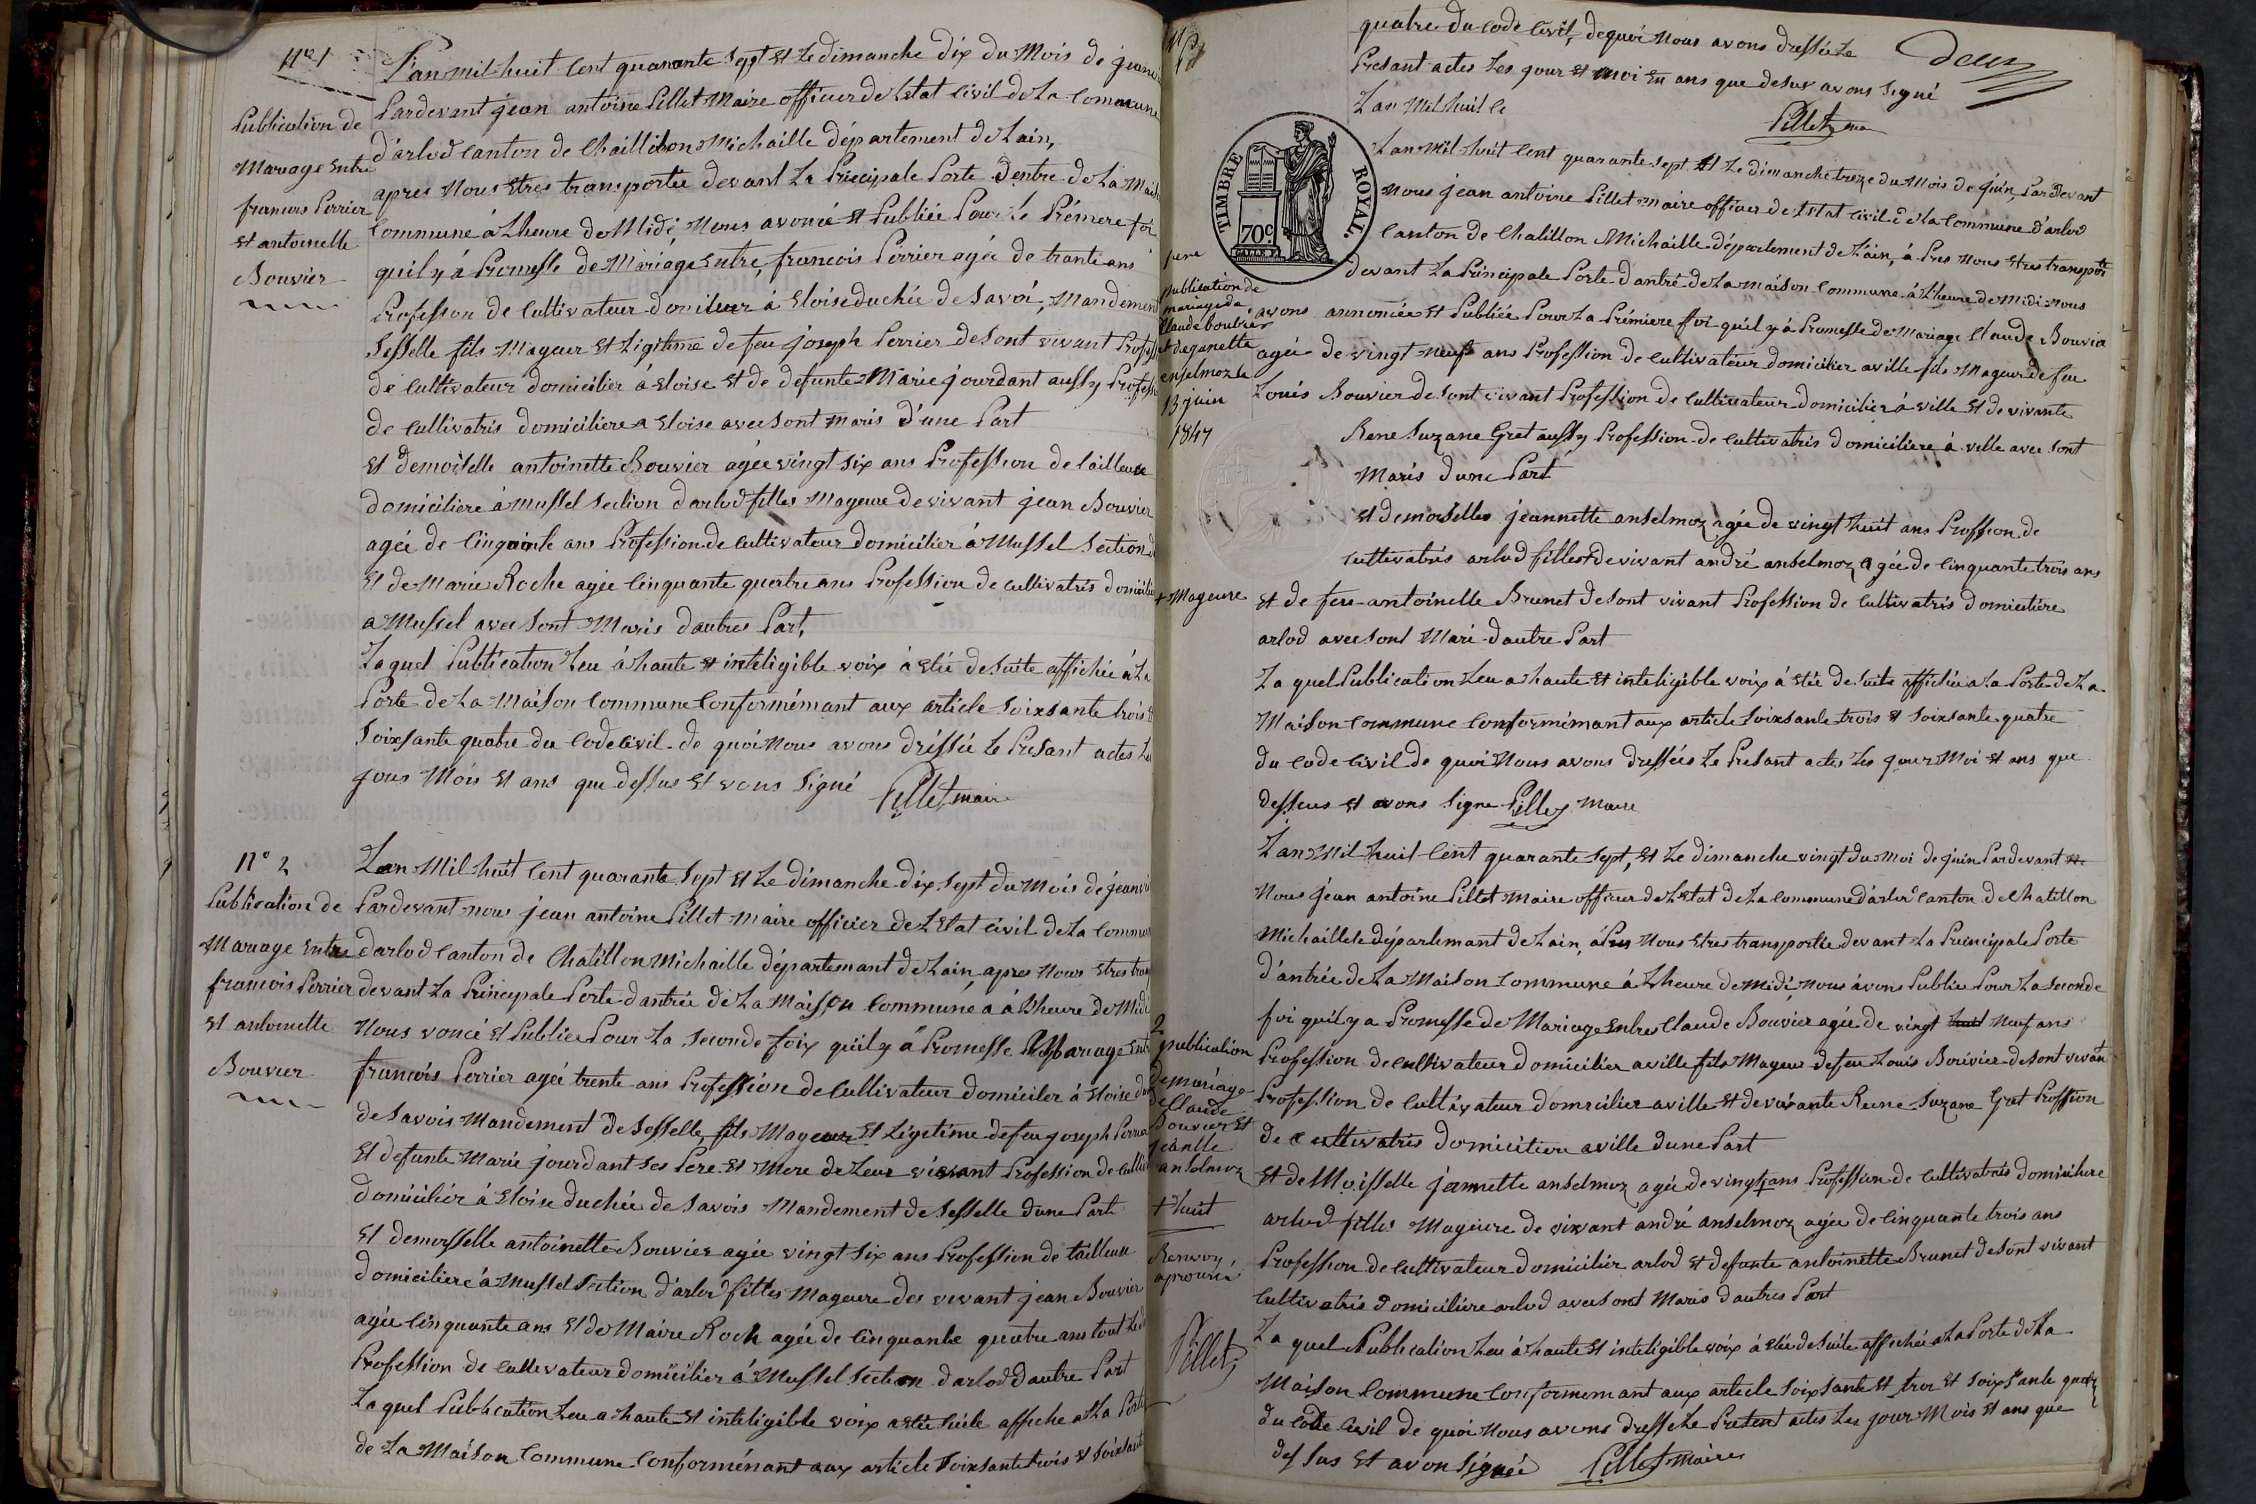 N° 1
Publication de
Mariage Entre
francois Perrier
et antoinette
Bouvier
L'an mil huit Cent quarante Sept et Le dimanche dix du Mois de
Pardevant jean antoine Pillet Maire officier de Létat Civil de La Commune
d'arlod Canton de Chaillilon Michaille département de Lain,
apres Nous Etres transportee devant La Principale Porte Dentre de La
Commune à Lheure de Midi, Nous avoncé et Publiée Pour Le Prémere foi
quil y à Promesse de Mariage Entre, francois Perrier agée de trante ans
Profession de Cultivateur domicilier à Eloise duchée de Savoi, Mandement
Sesselle fils Mageur et Ligitime de feu joseph Perrier de Sont vivant
de Cultivateur domicilier à Eloise et de defunte Marie jourdant aussy
de Cultivatris domiciliere a Eloise avec Sont maris d'une Part
Et demoiselle antoinette Bouvier agée vingt Six ans Profession de tailleuse
domiciliere à Mussel Section darlod filles Mageure de vivant jean Bouvier
agée de Cinquante ans Profession de Cultivateur domicilier à Mussel Section
Et de Marie Roche agée Cinquante quatre ans Profession de Cultivatris
a Mussel avec Sont Maris dautres Part,
Laquel Publication Leu à haute et inteligible voix à Etée de Suite affichée à La
Porte de La Maison Commune Conformémant aux article Soixsante trois
Soixsante quatre du Code Civil de quoi Nous avons dréssée Le Presant actes
jours Mois et ans que dessus et vons Signé Pillet maire
N° 2
Publication de
Mariage Entre
francois Perrier
et antoinette
Bouvier
Lan Mil huit Cent quarante Sept et Le dimanche dix Sept du Mois de
Pardevant nous jean antoine Pillet Maire officier de LEtat Civil de La
darlod Canton de Chatillon Michaille départemant de Lain, apres Nous Etres
devant La Principale Porte dantrée de La Maison Commune, a à Lheure de Midi
Nous voncé et Publiée Pour La Seconde foix quil y à Promesse de Mariage
francois Perrier agée trente ans Profession de Cultivateur domiciler à Eloise
de Savois Mandement de Sesselle, fils Mageur et Ligetime de feu joseph
Et defunte Marie jourdant Ses Pere et Mere de Leur vivant Profession de
domicilier à Eloise duchée de Savois Mandement de Sesselle dune Part
Et demoisselle antoinette Bouvier agée vingt Six ans Profession de tailleuse
domiciliere à Mussel Section d'arlod filles Mageure des vivant jean Bouvier
agée Cinquante ans Et de Maire Roch agée de Cinquante quatre ans
Profession de Cultivateur domicilier á Mussel Section darlod dautre Part
Laquel Publication Leu a haute et inteligible voix a etée Suite affiche a La Porte
de La Maison Commune Conformémant aux article Soixsante trois et
quatre du Code Civil, dequoi Nous avons dressée Le
Presant actes Les jour et moi En ans que desus avons Signé
Lan Mil huit Ce
Pillet
deux
TIMBRE ROYAL.
70c.
1er
publication de
mariage de
Claude bouvier
et de janette
enselmoz Le
13 juin
1847
Lan Mil huit Cent quarante Sept et Le dimanche treze du Mois de juin, Par devant
Nous jean antoine Pillet maire officier de Létat Civil de La Commune d'arlod
Canton de Chatillon Michaille département de Lain, à Pres Nous Etres
devant La Principale Porte d'antré de La maison Commune à Lheure de Midi Nous
avons annoncée et Publiée Pour La Prémiere foi quil y à Promesse de Mariage Claude Bouvier
agée de vingt Neuf ans Profession de Cultivateur domicilier a ville fils Mageur de feu
Louis Bouvier de Sont vivant Profession de Cultivateur domicilier à ville et de vivante
Rene Suzane Gret aussy Profession de Cultivatris domiciliere à ville avec Sont
Maris dune Part
Et demoiselles jeannette anselmoz agée de vingt huit ans Proffion de
Cultivatris arlod filles + de vivant andré anselmoz agée de Cinquante trois ans
+ Mageure
Et de feu antoinelle Brunet de Sont vivant Profession de Cultivatris domicilière
arlod avec Sont Mari dautre Part
La quel Publication Leu a haute et inteligible voix à étée de Suite affichée a La Porte de La
Maison Commune Conformémant aux article Soixsante trois et Soixsante quatre
du Code Civil de quoi Nous avons dressées Le Presant actes Les jour Moi et ans que
dessus et avons Signe Pillet Maire
2
publication
de mariage
de Claude
Bouvier Et
jeanette
anselmoz
+ huit
Renvoy
aprouvé
Pillet
Lan Mil huit Cent quarante Sept, et Le dimanche vingt du Moi de juin Pardevant
Nous jean antoine Pillet Maire officier de LEtat de La Commune d'arlod Canton de Chatillon
Michaille département de Lain, à Pres Nous Etres transportée devant La Principale Porte
d'antrée de La Maison Commune à Lheure de midi, Nous avons Publiee Pour La Seconde
foi quil y a Promesse de Mariage Entre Claude Bouvier agée de vingt huit Neuf ans
Profession de Cultivateur domicilier a ville fils Mageur de feu Louis Bouvier de Sont vivant
Profession de Cultivateur domicilier a ville et de vivante Reine Suzane Gret Proffion
de Cultivatris domicilière a ville dune Part
Et deMoisselle jeannette anselmoz agée de vingt + ans Profession de Cultivatris domiciliere
arlod filles Mageure de vivant andré anselmoz agée de Cinquante trois ans
Profession de Cultivateur domicilier arlod et defunte antoinette Brunet de Sont vivant
Cultivatris domicilière arlod avec Sont Maris dautres Part
La quel Publication Leu à haute et inteligible voix à étée de Suite affichée a La Porte de La
Maison Commune Conformemant aux article Soixsante et troi et Soixsante quatre
du Code Civil de quoi Nous avons dresse Le Present actes Les jour Mois et ans que
dessus Et avon Signée Pillet Maire